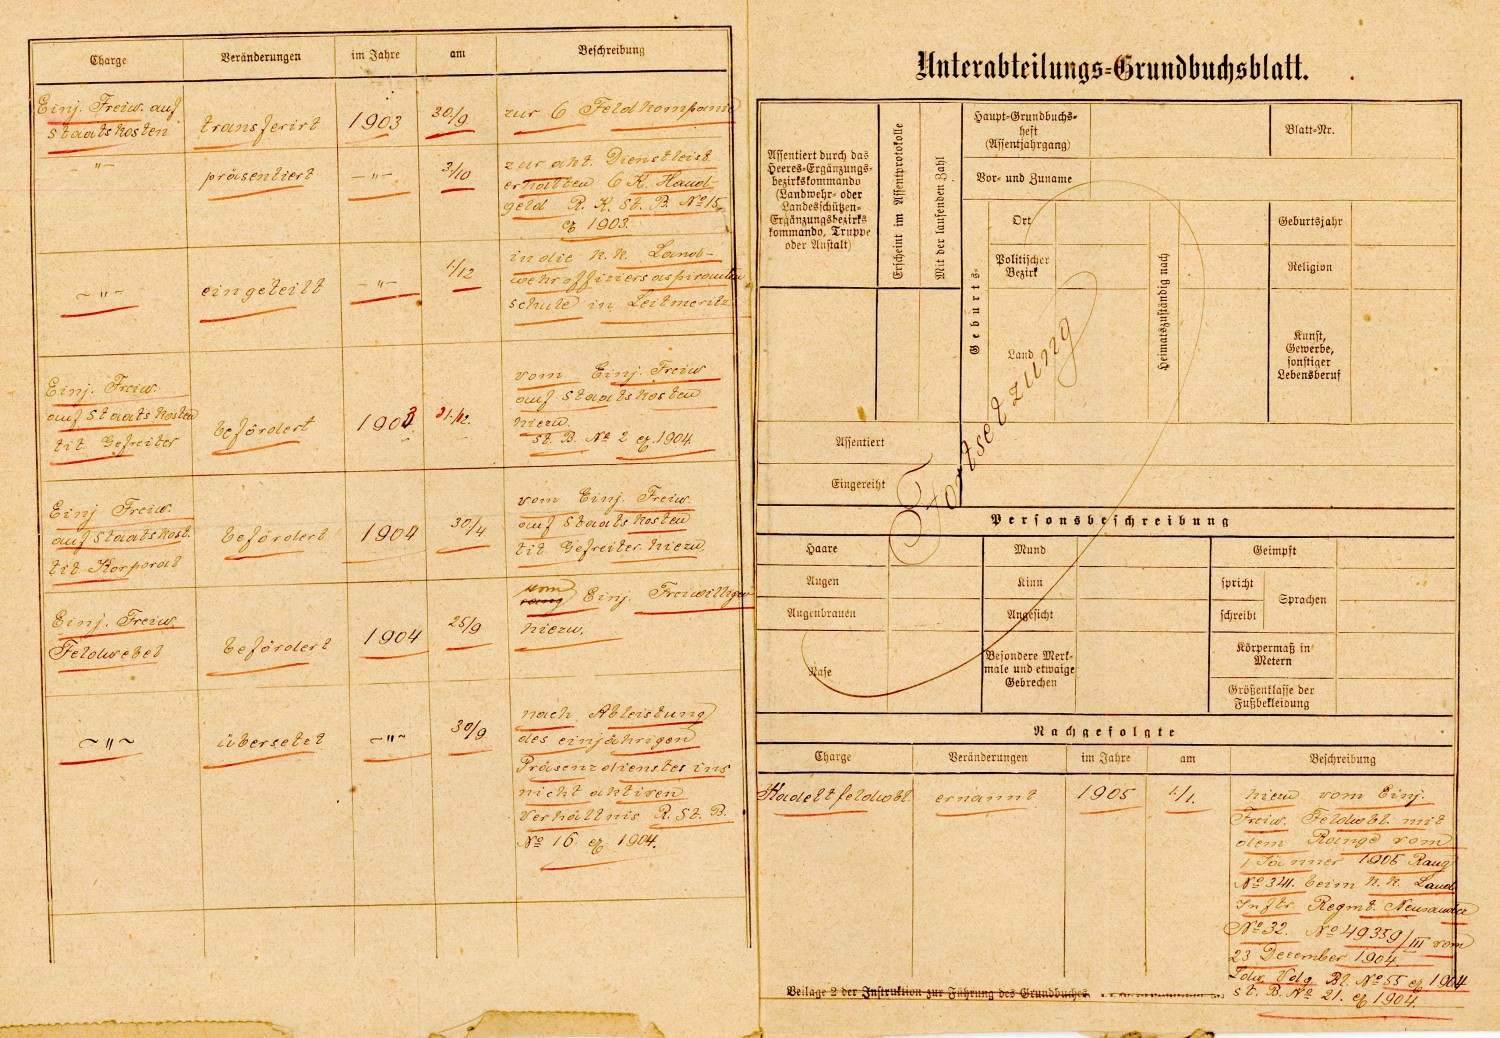 Charge Veränderungen im Jahre am Beschreibung
Einj. Freiw. auf
Staatskosten transferirt 1903 30/9 zur 6 Feldkompanie
-"- präsentiert -"- 3/10 zur akt. Dienstleist.
erhalten 6 K. Hand-
geld R. K. St. B. No 15
ex 1903.
~"~ eingeteilt -"- 1/12 in die k. k. Land-
wehroffiziersaspiranten
schule in Leitmeritz
Einj. Freiw.
auf Staatskosten
tit. Gefreiter befördert 1903 21./12. vom Einj. Freiw
auf Staatskosten
hiezu.
St. B. No 2 ex 1904.
Einj Freiw.
auf Staatskost.
tit Korporal befördert 1904 30/4 vom Einj. Freiw.
auf Staatskosten
tit Gefreiter hiezu.
Einj. Freiw.
Feldwebel befördert 1904 25/9 vom
Einj. Freiwilligen
hiezu.
~"~ übersetet ~"~ 30/9 nach Ableistung
des einjährigen
Präsenzdienstes ins
nicht aktiven
Verhältnis R. St. B.
No 16 ex 1904.
Unterabteilungs=Grundbuchsblatt.
Assentiert durch das
Heeres=Ergänzungs-
bezirkskommando
(Landwehr= oder
Landesschützen-
Ergänzungsbezirks
kommando, Truppe
oder Anstalt)
Erscheint im Assentprotokolle
Mit der laufenden Zahl
Haupt=Grundbuchs-
heft
(Assentjahrgang)
Blatt=Nr.
Vor= und Zuname
Geburts-
Ort
Politischer
Bezirk
Land
Heimatszuständig nach
Geburtsjahr
Religion
Kunst,
Gewerbe,
sonstiger
Lebensberuf
Fortsetzung
Assentiert
Eingereiht
Personsbeschreibung
Haare Mund Geimpft
Augen Kinn spricht Sprachen
Augenbrauen Angesicht schreibt
Nase Besondere Merk-
male und etwaige
Gebrechen
Körpermaß in
Metern
Größenklasse der
Fußbekleidung
Nachgefolgte
Charge Veränderungen im Jahre am Beschreibung
Kadettfeldwbl. ernannt 1905 1/1. hiezu vom Einj.
Freiw. Feldwbl. mit
dem Range vom
1 Jänner 1905 Rang
No 341. beim k. k. Land
Inftr. Regmt. Neusandez
No 32. No 49359/III vom
23 Dezember 1904.
Ldw. Vdg. Bl. No 55 ex 1904
St. B. No 21. ex 1904.
Beilage 2 der Instruktion zur Führung des Grundbuches.